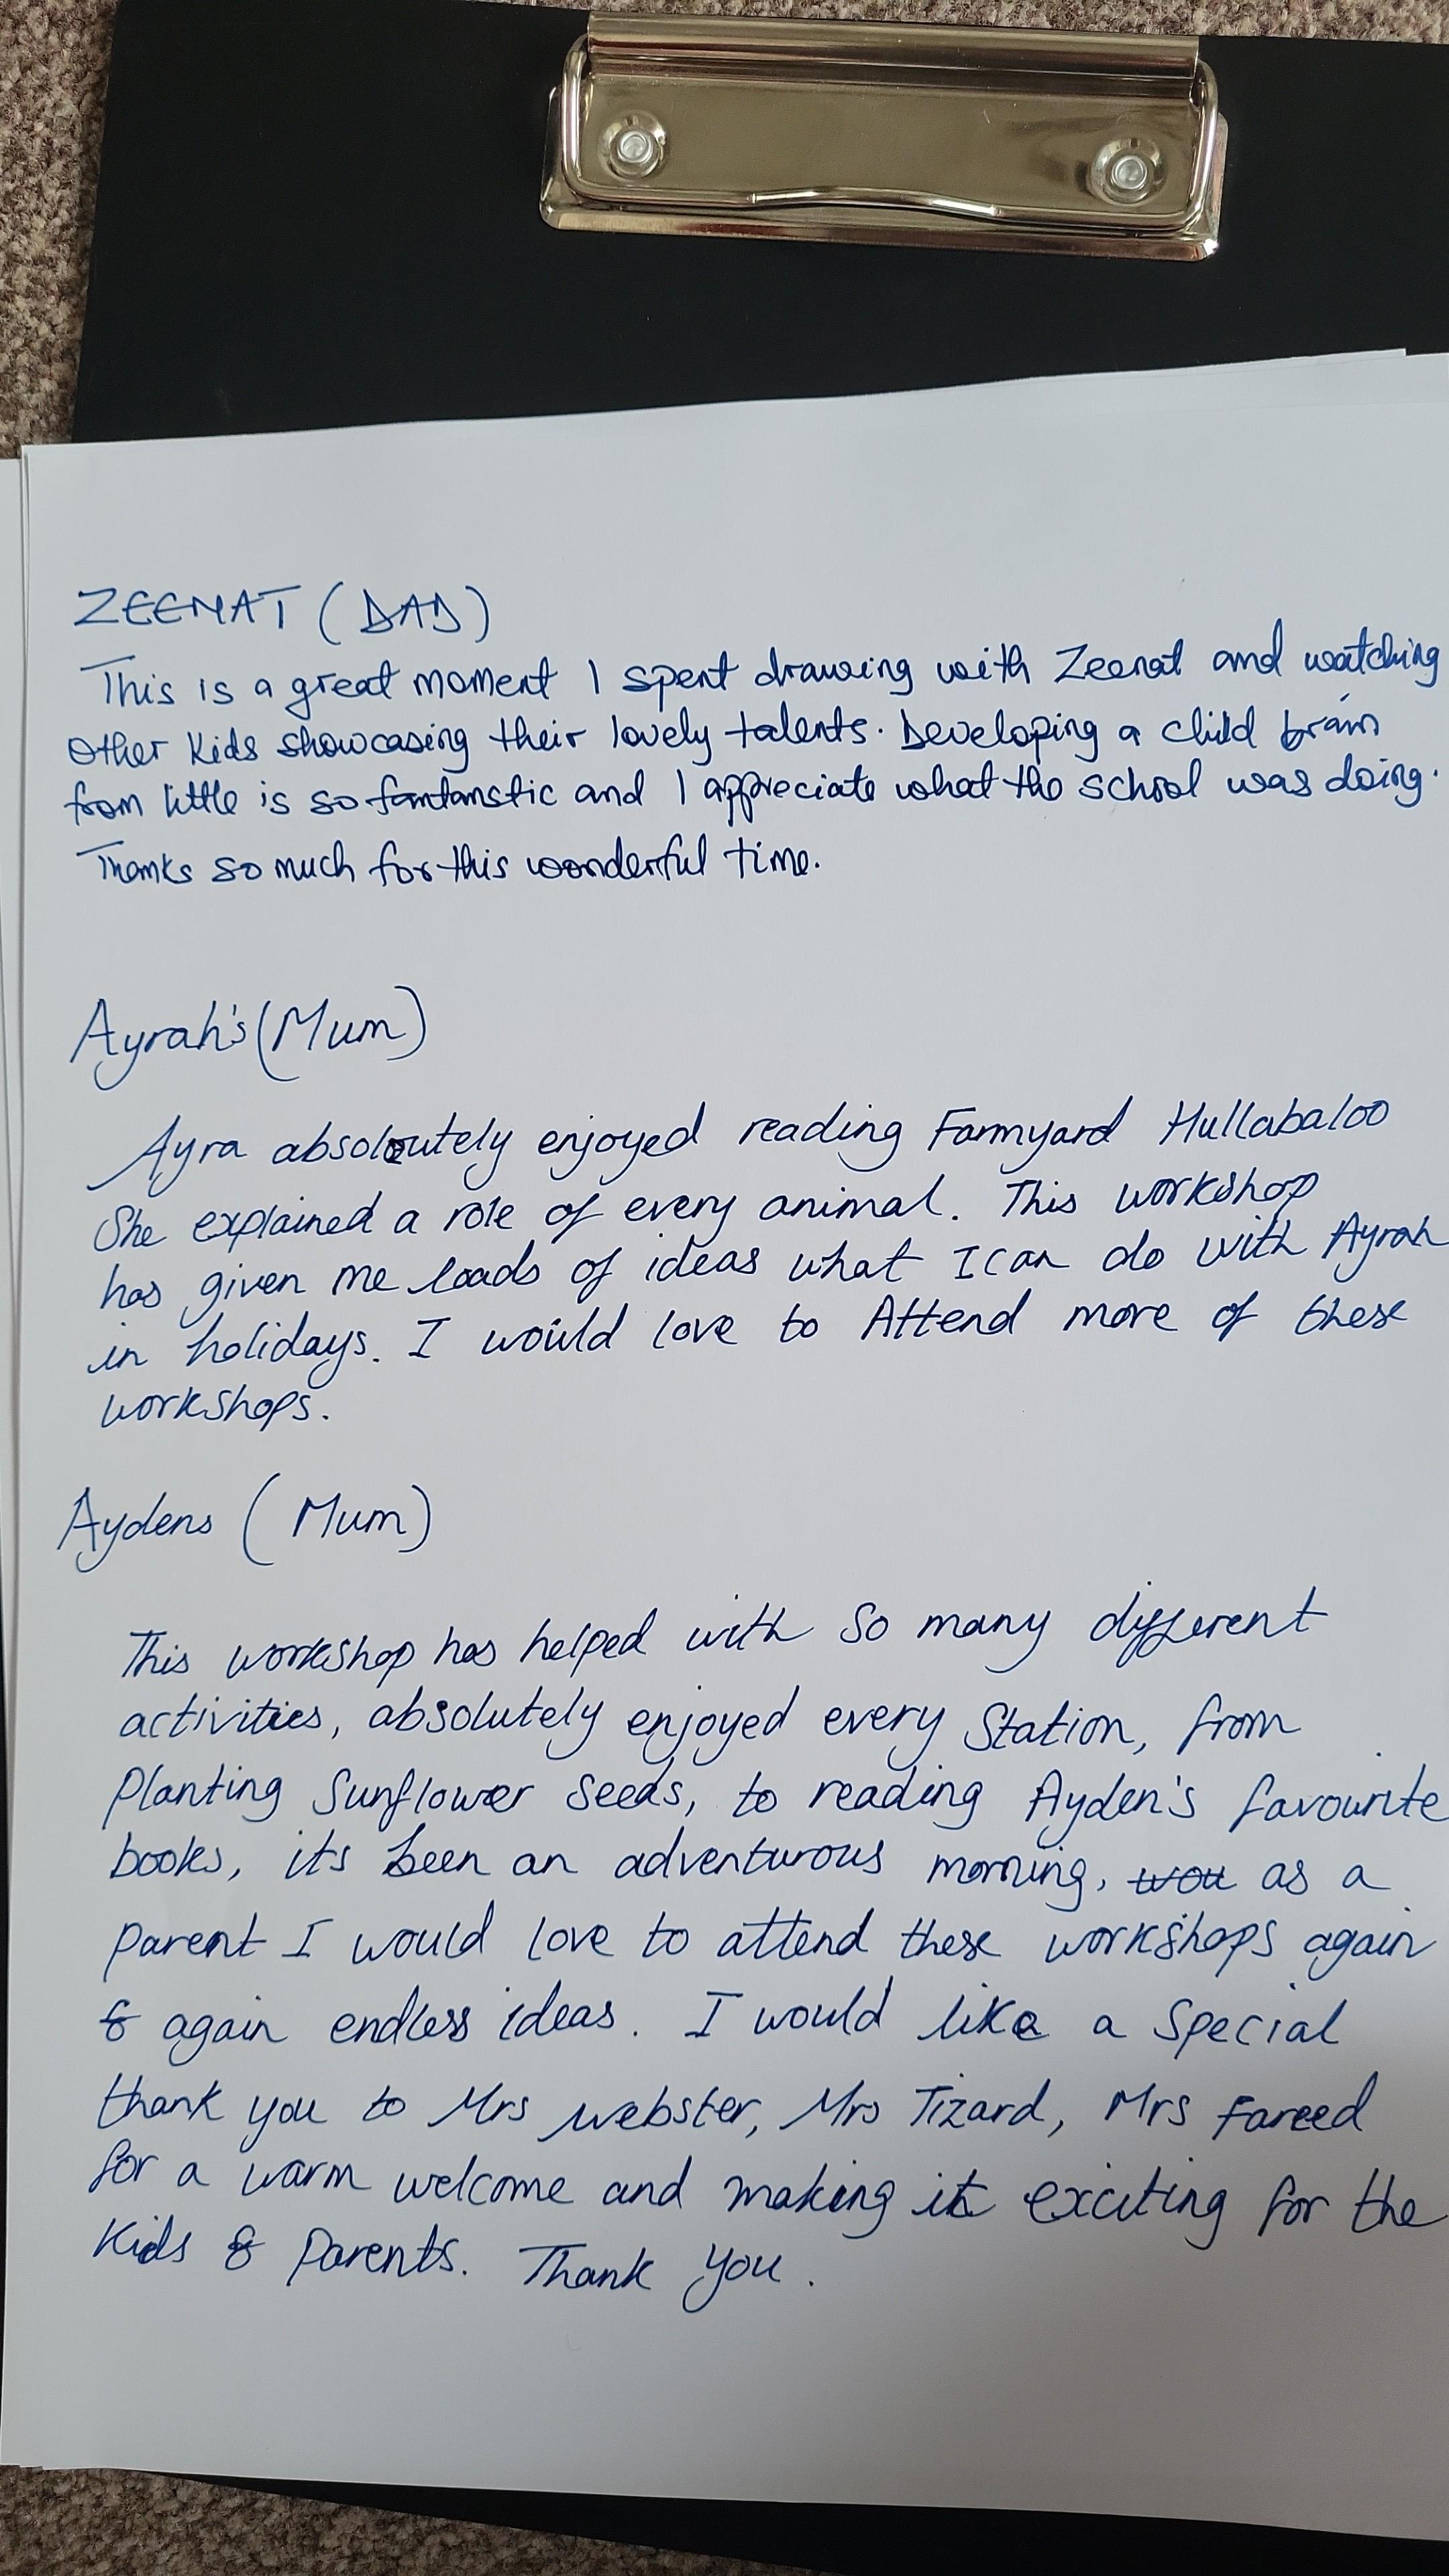 ZEENAT (DAD)
This is a great moment I spent drawing with Zeenat and watching
other kids showcasing their lovely talents. Developing a child brain
from little is so fantanstic and I appreciate what the school was doing.
Thanks so much for this wonderful time.
Ayrah's (Mum)
Ayra absolutely enjoyed reading Farmyard Hullabaloo
She explained a role of every animal. This workshop
has given me loads of ideas what I can do with Ayrah
in holidays. I would love to Attend more of these
workshops.
Aydens (Mum)
This workshop has helped with so many different
activities, absolutely enjoyed every Station, from
Planting Sunflower Seeds, to reading Ayden's favourite
books, its been an adventurous morning, wou as a
parent I would love to attend these workshops again
& again endless ideas. I would like a Special
thank you to Mrs Webster, Mrs Tizard, Mrs Fareed
for a warm welcome and making it exciting for the
Kids & Parents. Thank you.